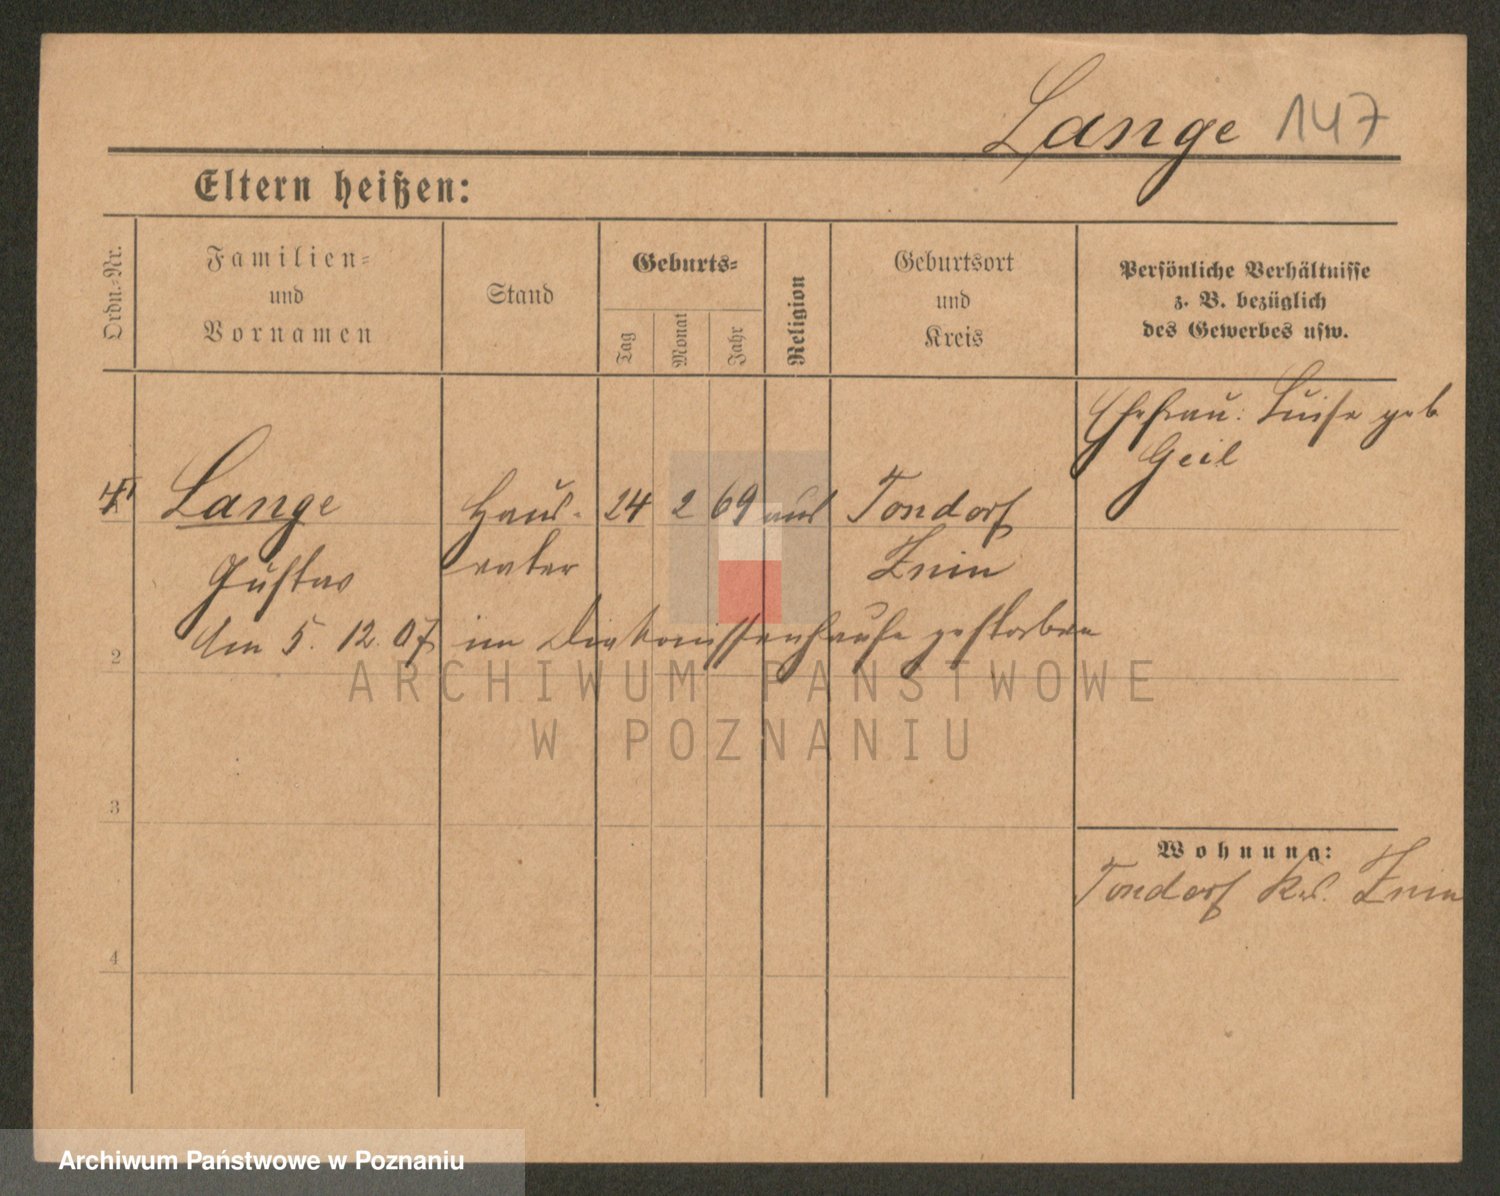 Lange 147
Eltern heißen:
Ordn.-Nr.
Familien-
und
Vornamen
Stand
Geburts-
Tag
Monat
Jahr
Religion
Geburtsort
und
Kreis
Persönliche Verhältnisse
z. B. bezüglich
des Gewerbes usw.
Ehefrau: Luise geb
Geil
Lange Haus- 24 2 69 Tondorf
Gustav vater Znin
Am 5. 12. 07 im Diakonissenhause gestorben
2
3
4
Wohnung:
Tondorf Krs. Znin
ARCHIWUM PAŃSTWOWE
W POZNANIU
Archiwum Państwowe w Poznaniu